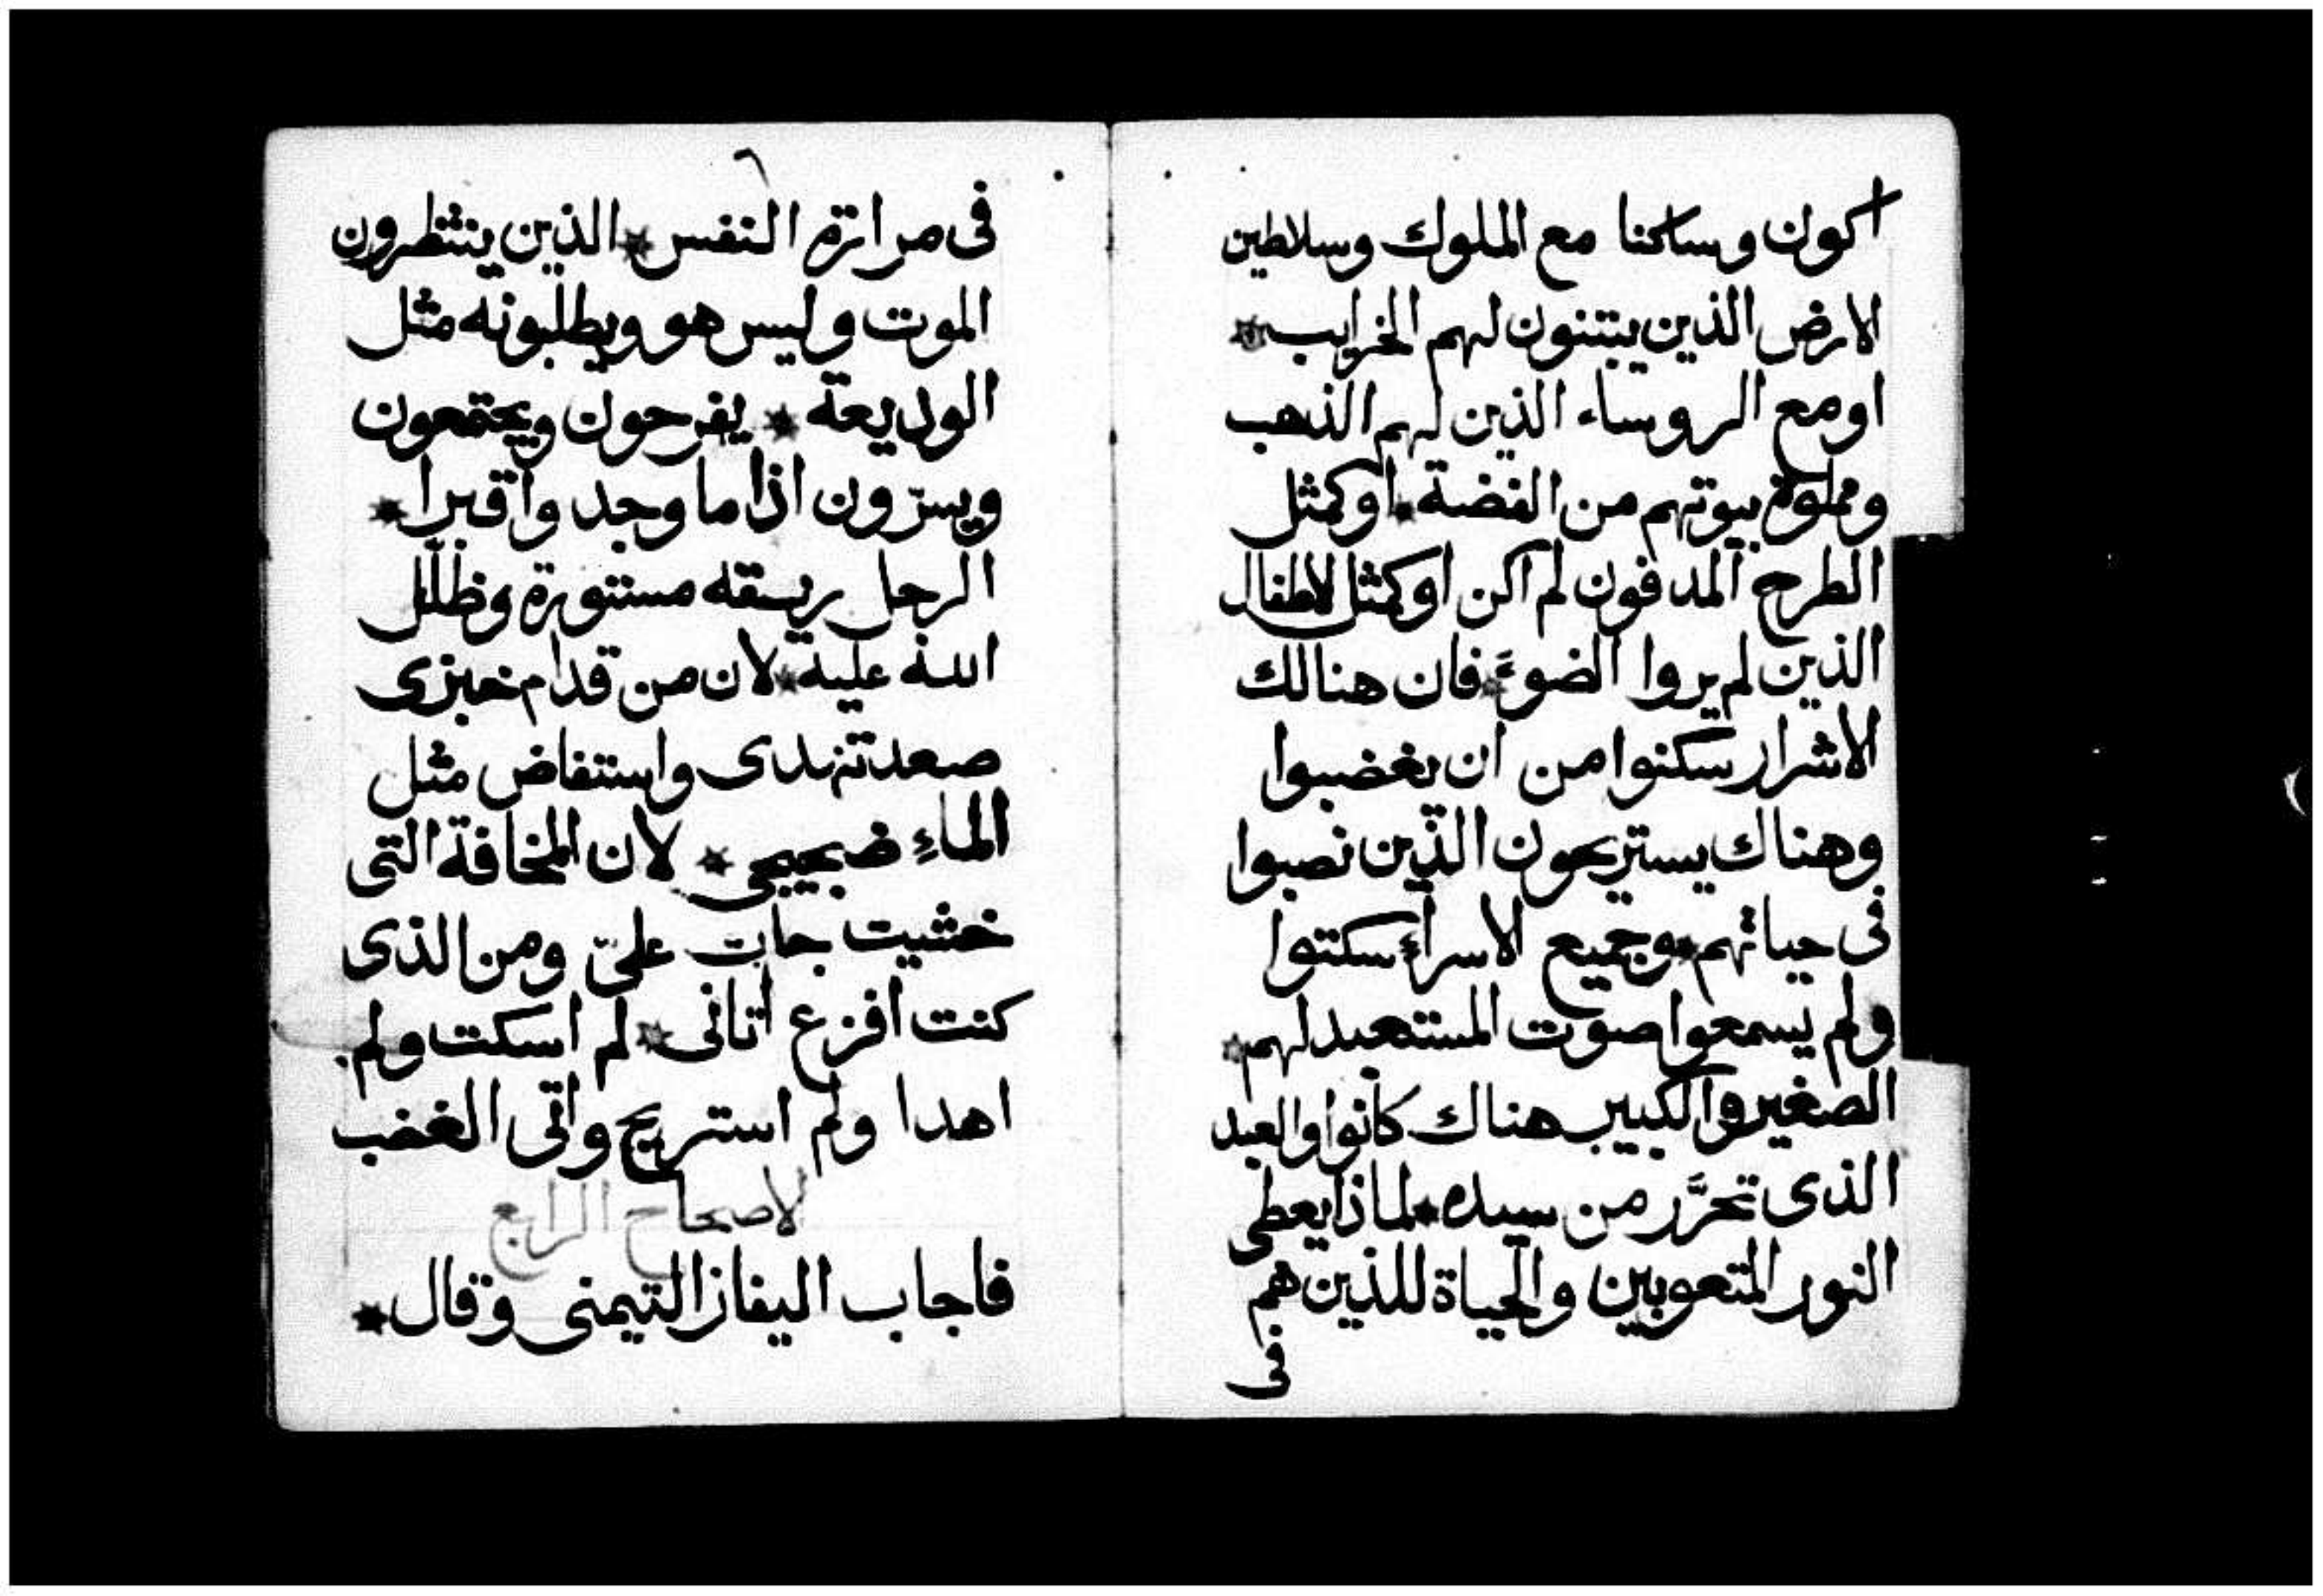 اكون وساكنا مع الملوك وسلاطين
الارض الذين يبتنون لهم الخرايب *
او مع الروساء الذين لهم الذهب
ومملوة بيوتهم من الفضة * او كمثل
الطرح المدفون لم اكن او كمثل الاطفال
الذين لم يروا الضوء * فان هنالك
الاشرار سكنوا من ان يغضبوا
وهناك يستريحون الذين نصبوا
فى حياتهم * وجميع الاسراء سكتوا
ولم يسمعوا صوت المستعبد لهم *
الصغير والكبير هناك كانوا والعبد
الذى تحرَّر من سيده * لماذا يعطى
النور المتعوبين والحياة للذين هم
فى
٦
فى مرارة النفس * الذين ينتظرون
الموت وليس هو ويطلبونه مثل
الوديعة * يفرحون ويجتمعون
ويسرّون اذا ما وجدوا قبرا *
الرجل ريسقه مستورة وظلل
الله عليه * لان من قدام خبزى
صعد تنهدى واستفاض مثل
الماء ضجيجى * لان المخافة التى
خشيت جات علىّ ومن الذى
كنت افزع اتانى * لم اسكت ولم
اهدا ولم استريح واتى الغضب
الاصحاح الرابع
فاجاب اليفاز التيمنى وقال *